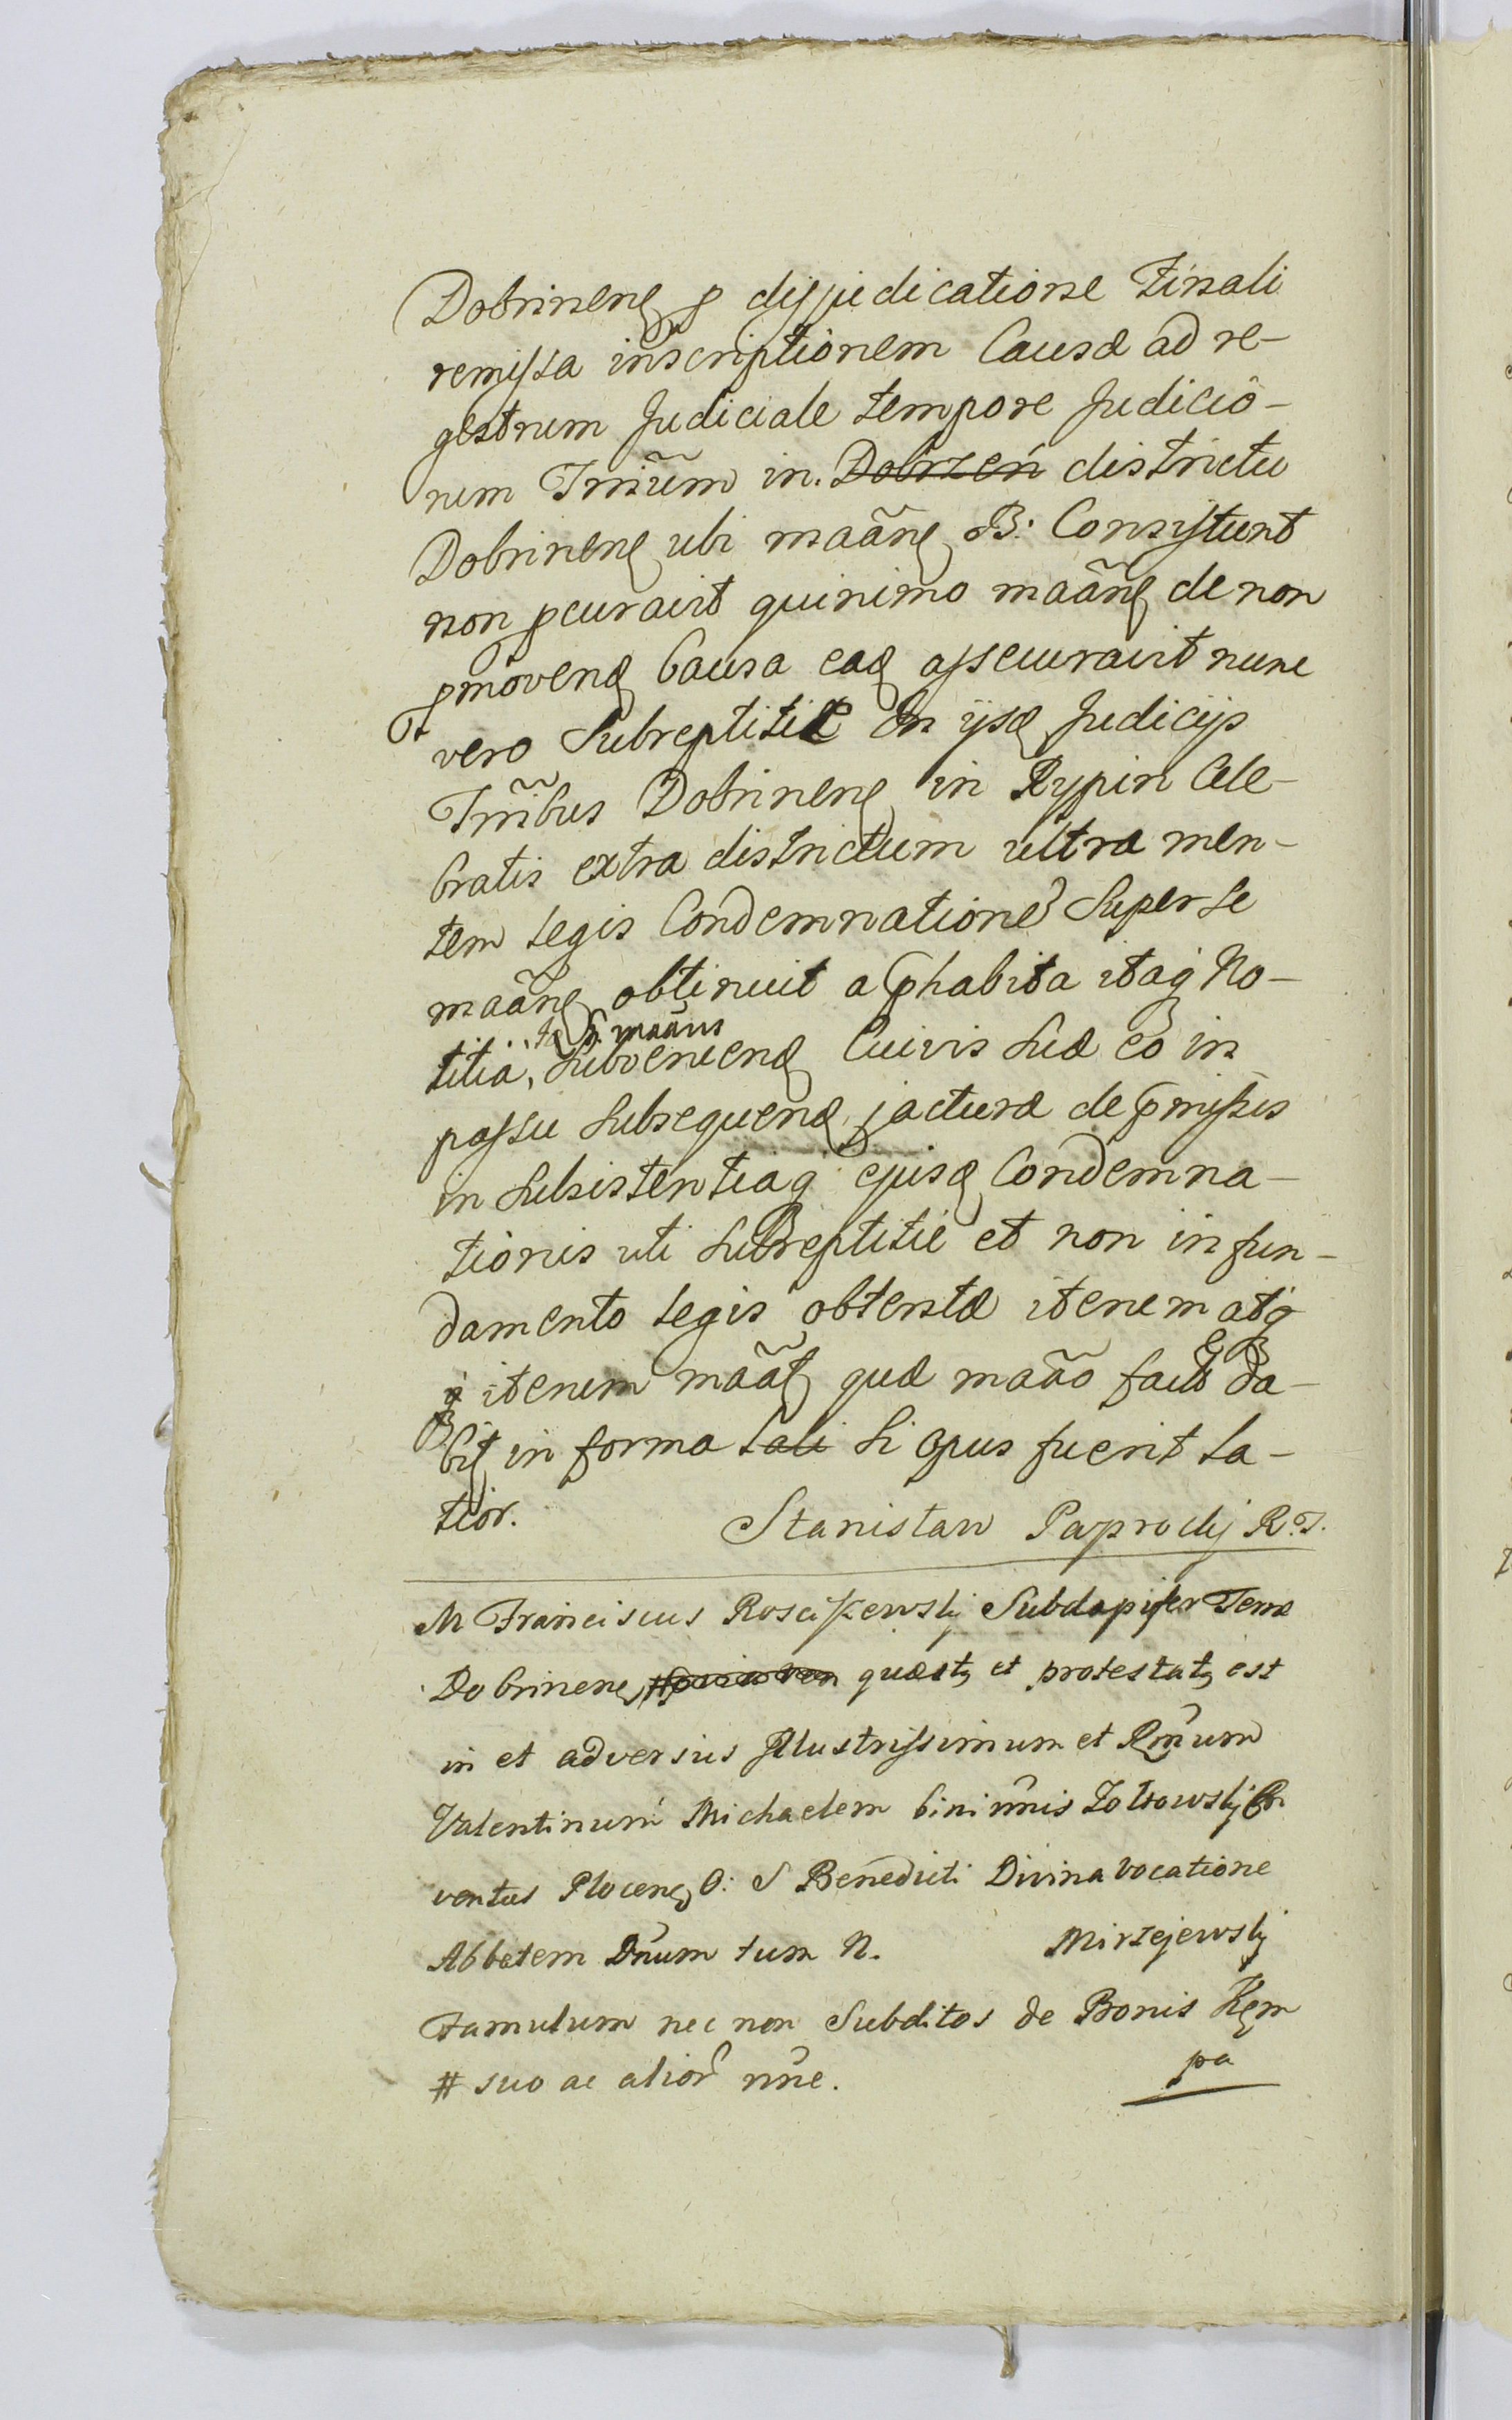 Dobrinen̨ p disjudicatione Finali
remissa inscriptionem Causæ ad re-
gestrum Judiciale tempore Judicio-
rum Trrĩum in. Dobrzeń districtu
Dobrinen̨ ubi maãn̨ B: Consistunt
non pcuravit quinimo maãn̨ de non
pmovend̨ Causa ead̨ assecuravit nunc
vero Subreptitie In ijsd̨ Judicijs
Trrĩbus Dobrinen̨ in Rypin Cele-
bratis extra districtum ultra men-
tem legis Condemnationẽ Super se
maãn̨ obtinuit a phabita itaq No-
titia, Subvenend̨ Cuivis Suæ eo in
S. maãns
passu Subsequend̨ jacturæ de pmissis
in Subsistentiaq ejusd̨ Condemna-
tionis uti Subreptitie et non in fun-
damento legis obtentæ iterum atq
q iterum maãt̨ quæ maão fact da-
bit̨ in forma tali Si opus fuerit La-
tior.
Stanisław Paprocky R.T.
M Franciscus Rosciszewsky Subdapifer Terræ
Dobrinen̨ # quæst̨ et protestat̨ est
in et adversus Illustrissimum et Rm̃um
Valentinum Michaelem binim̃nis Zołtowsky Con
ventus Plocen̨ O: S Benedicti Divina Vocatione
Abbatem Dñum tum N. Mirzejewsky
Famulum nec non Subditos de Bonis Kęm
pa
# suo ac alior̃ nñe.